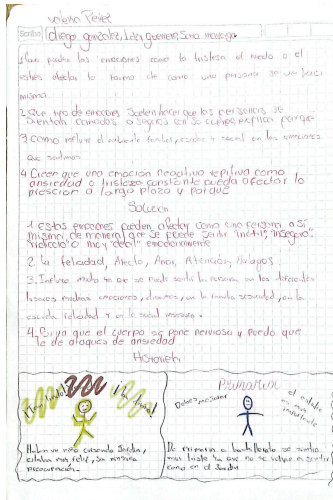 Valeria Perez
Scribe diego gonzalez, Lidy guerrero, Sara
como las emociones como la tristeza el miedo o el
estres afectar la forma de como una persona se
misma.
2. Que tipo de emociones Suelen hacer que las personas se
sientan comodos o seguros en su cuerpo, explicar porque
3. Como influye el ambiente familiar, escolar y social en las emociones
que sentimos
4. Creen que una emoción negativa repitiva como
ansiedad o tristeza constante pueda afectar la
presción a largo plazo y porqué
Solución
1. Estas emociones pueden afectar como una persona a Sí
misma, de manera que se puede sentir "inutil", "inseguro",
"ridiculo" o muy "debil" emocionalmente
2. la felicidad, Afecto, Amor, Atención, Halagos
3. Influye mucho ya que se puede sentir la persona, en los diferentes
lugares muchas emociones, en la familia seguridad, en la
escuela felicidad y en lo social
4. que el cuerpo se pone nervioso y puede que
le de ataques de ansiedad
Historieta
¡Muy lindo!
¡Muy
Había un niño cursando Jardín,
estaba muy feliz, Sin ninguna
preocupación.
Primaria
Debes
el estudio
es muy
importante
De primaria a bachillerato se sentia
mas triste ya que no se volvia a sentir
como en el Jardin